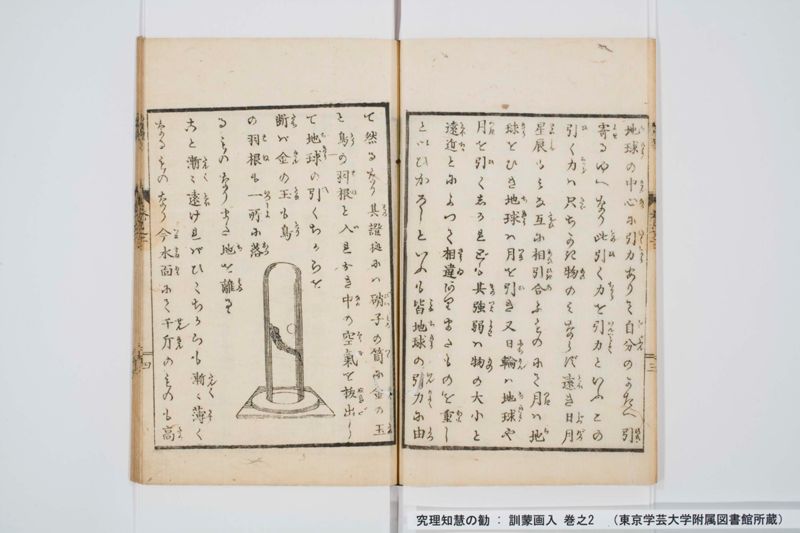 地球の中心に引力ありて自分のかたへ引
寄るゆへなり此引く力を引力といふこの
引く力ハ尺ちかき物のミならバ遠き日月
星辰もミな互に相引合ふものにて月ハ地
球をひき地球ハ月を引き又日輪ハ地球や
月を引く
其強弱ハ物の大小と
遠近とによつて相違ありまたものを重し
といひかろしといふも皆地球の引力に由
て然るなり其證拠にハ硝子の筒に金の玉
と鳥の羽根と入
中の空氣を抜出し
て地球の引くちからを
断バ金の玉も鳥
の羽根も一所に落
るものなりまた地を離る
こと漸々遠けれバひくちからも漸々薄く
なるものなり今水面にて千斤のものも高
三
四
究理知慧の勧 : 訓蒙画入 巻之2 （東京学芸大学附属図書館所蔵）